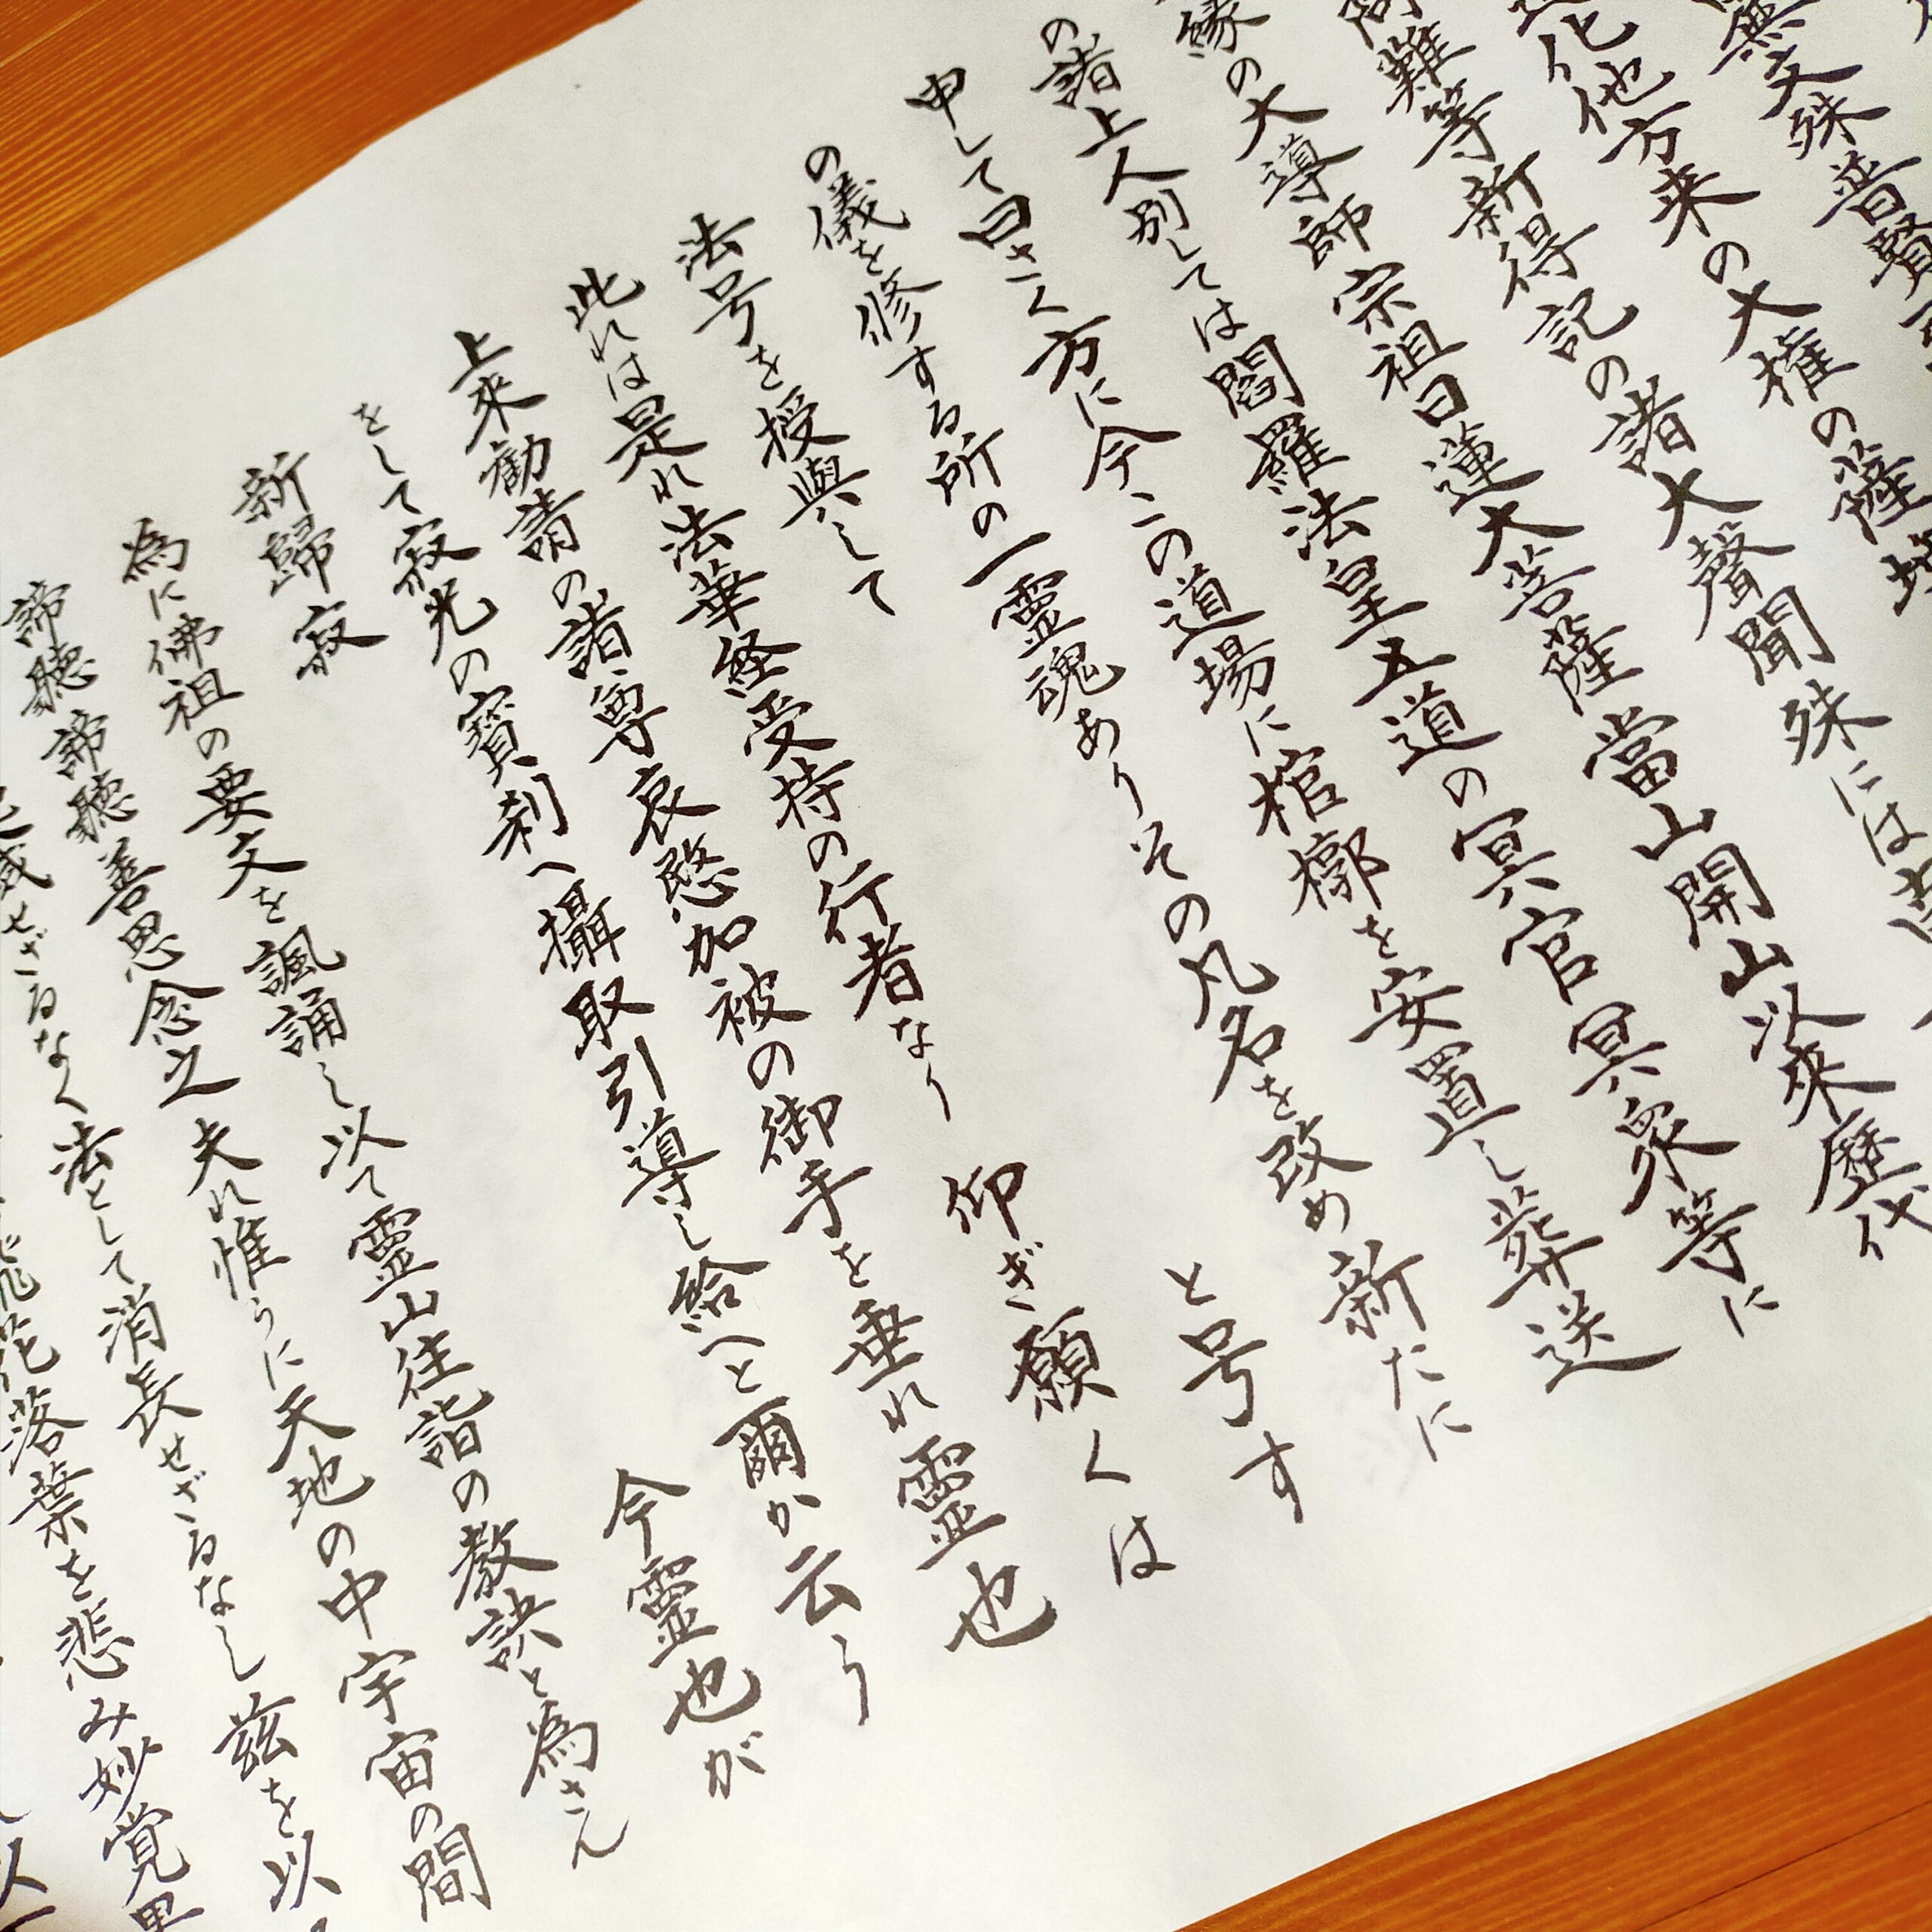 文殊普賢
化他方来の大権の薩埵
難等新得記の諸大聲聞殊には
縁の大導師宗祖日蓮大菩薩當山開山以来歴代
の諸上人別しては閻羅法皇五道の冥官冥衆等に
申して曰さく方に今この道場に棺槨を安置し葬送
の儀を修する所の一霊魂ありその凡名を改め新たに
法号を授與して と号す
此れは是れ法華経受持の行者なり 仰ぎ願くは
上来勧請の諸尊哀愍加被の御手を垂れ靈也
をして寂光の寳刹へ攝取引導し給へと爾か云う
新歸寂 今靈也が
為に佛祖の要文を諷誦し以て靈山往詣の教訣と為さん
諦聴諦聴善思念之 夫れ惟うに天地の中宇宙の間
滅せざるなく法として消長せざるなし茲を以
飛花落葉を悲み妙覚